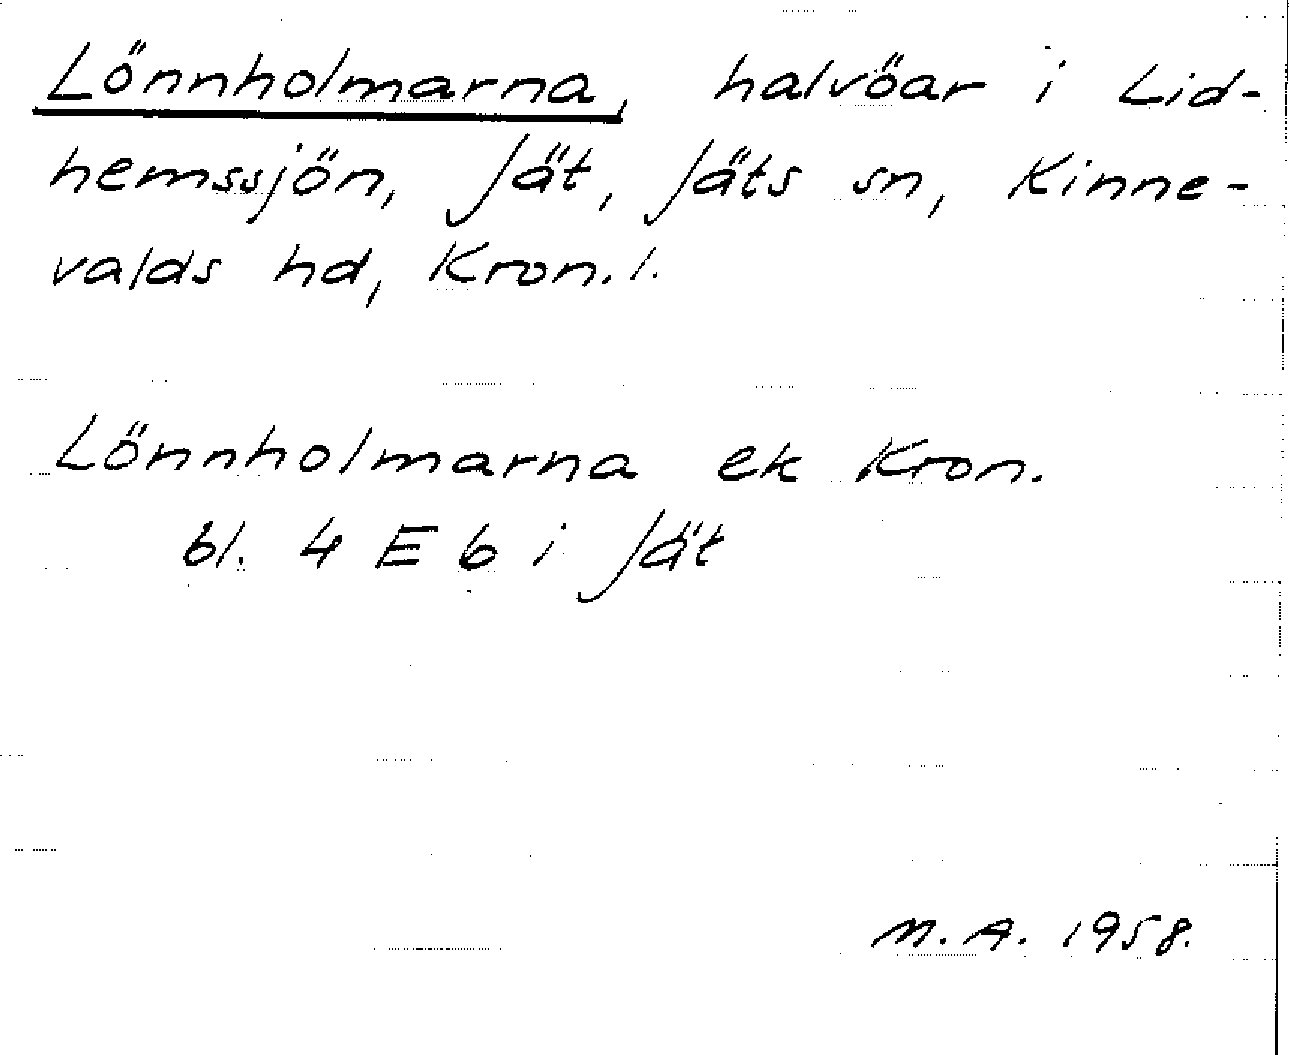 Lönnholmarna, halvöar i Lid-
hemssjön, Jät, Jäts sn, Kinne-
valds hd, Kron. l.
Lönnholmarna ek Kron.
bl. 4 E b i Jät
M.A. 1958.